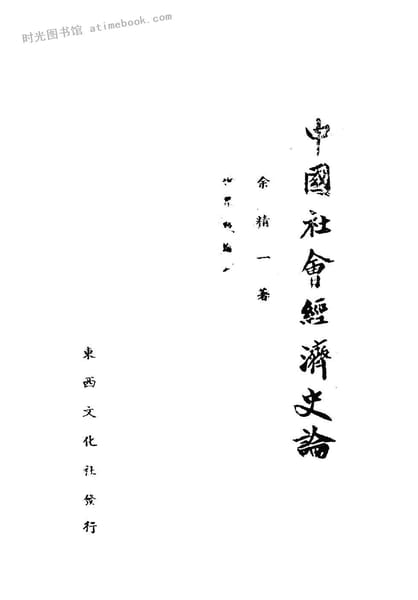 时光图书馆 atimebook.com
中國社會經濟史論
余精一著
東西文化社發行